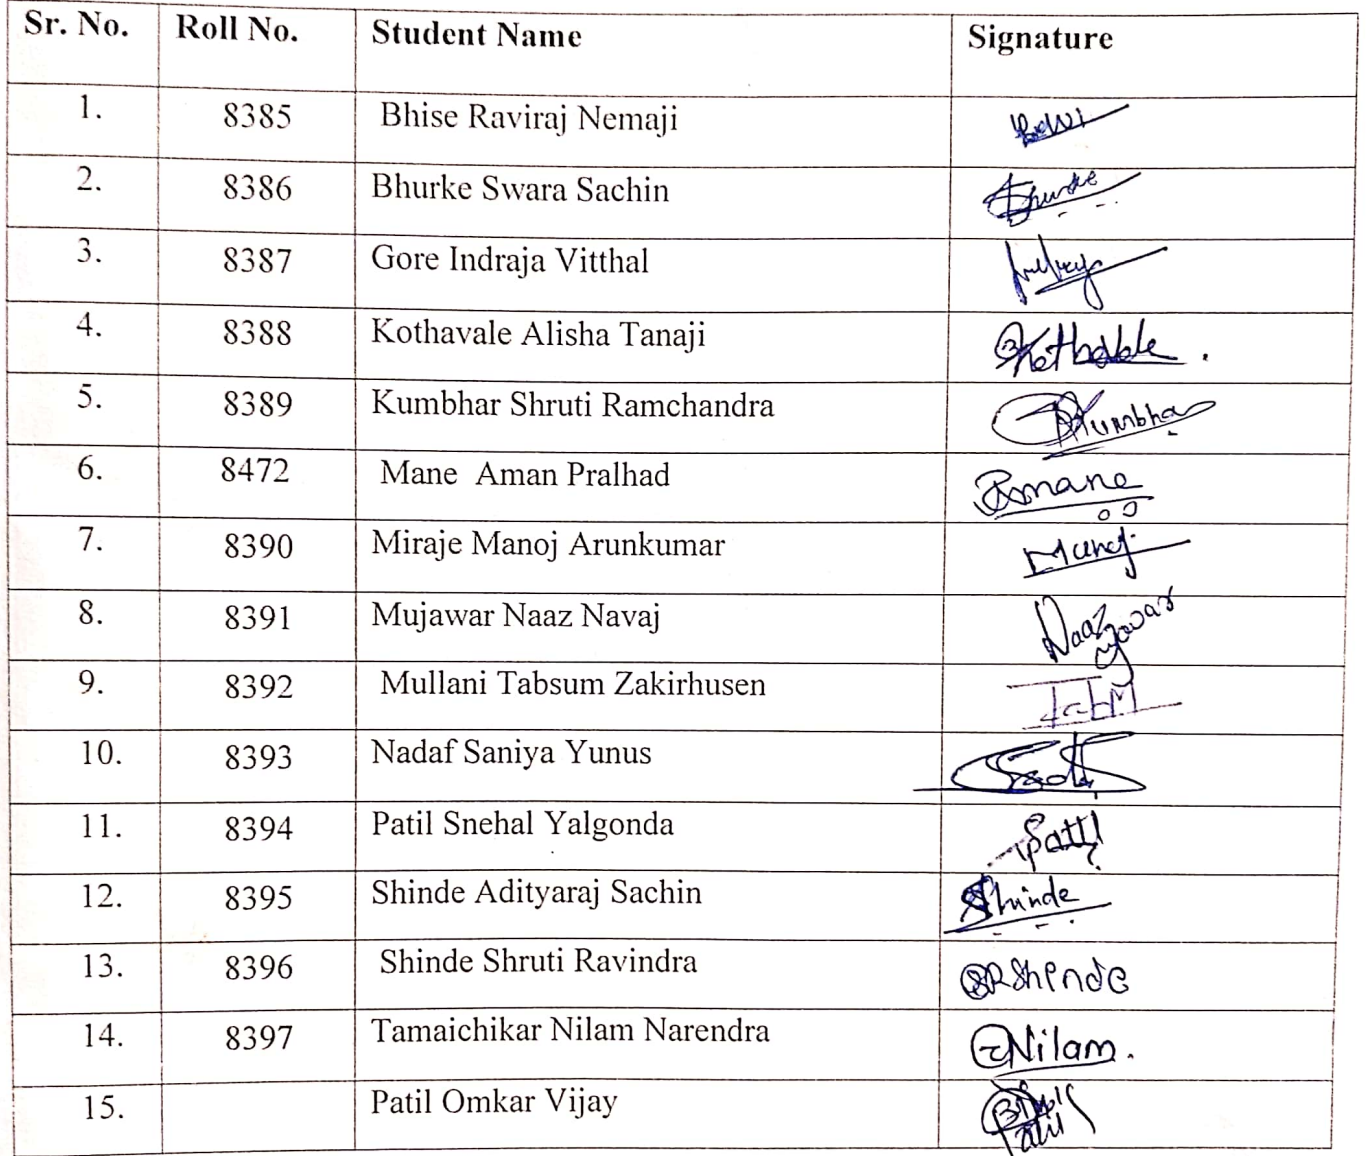 Sr. No. Roll No. Student Name Signature
1. 8385 Bhise Raviraj Nemaji
2. 8386 Bhurke Swara Sachin Bhurke
3. 8387 Gore Indraja Vitthal
4. 8388 Kothavale Alisha Tanaji Kothavale.
5. 8389 Kumbhar Shruti Ramchandra Kumbhar
6. 8472 Mane Aman Pralhad Amane
7. 8390 Miraje Manoj Arunkumar Manoj
8. 8391 Mujawar Naaz Navaj Naaz
9. 8392 Mullani Tabsum Zakirhusen
10. 8393 Nadaf Saniya Yunus
11. 8394 Patil Snehal Yalgonda Patil
12. 8395 Shinde Adityaraj Sachin Shinde
13. 8396 Shinde Shruti Ravindra SRShinde
14. 8397 Tamaichikar Nilam Narendra Nilam.
15. Patil Omkar Vijay Patil